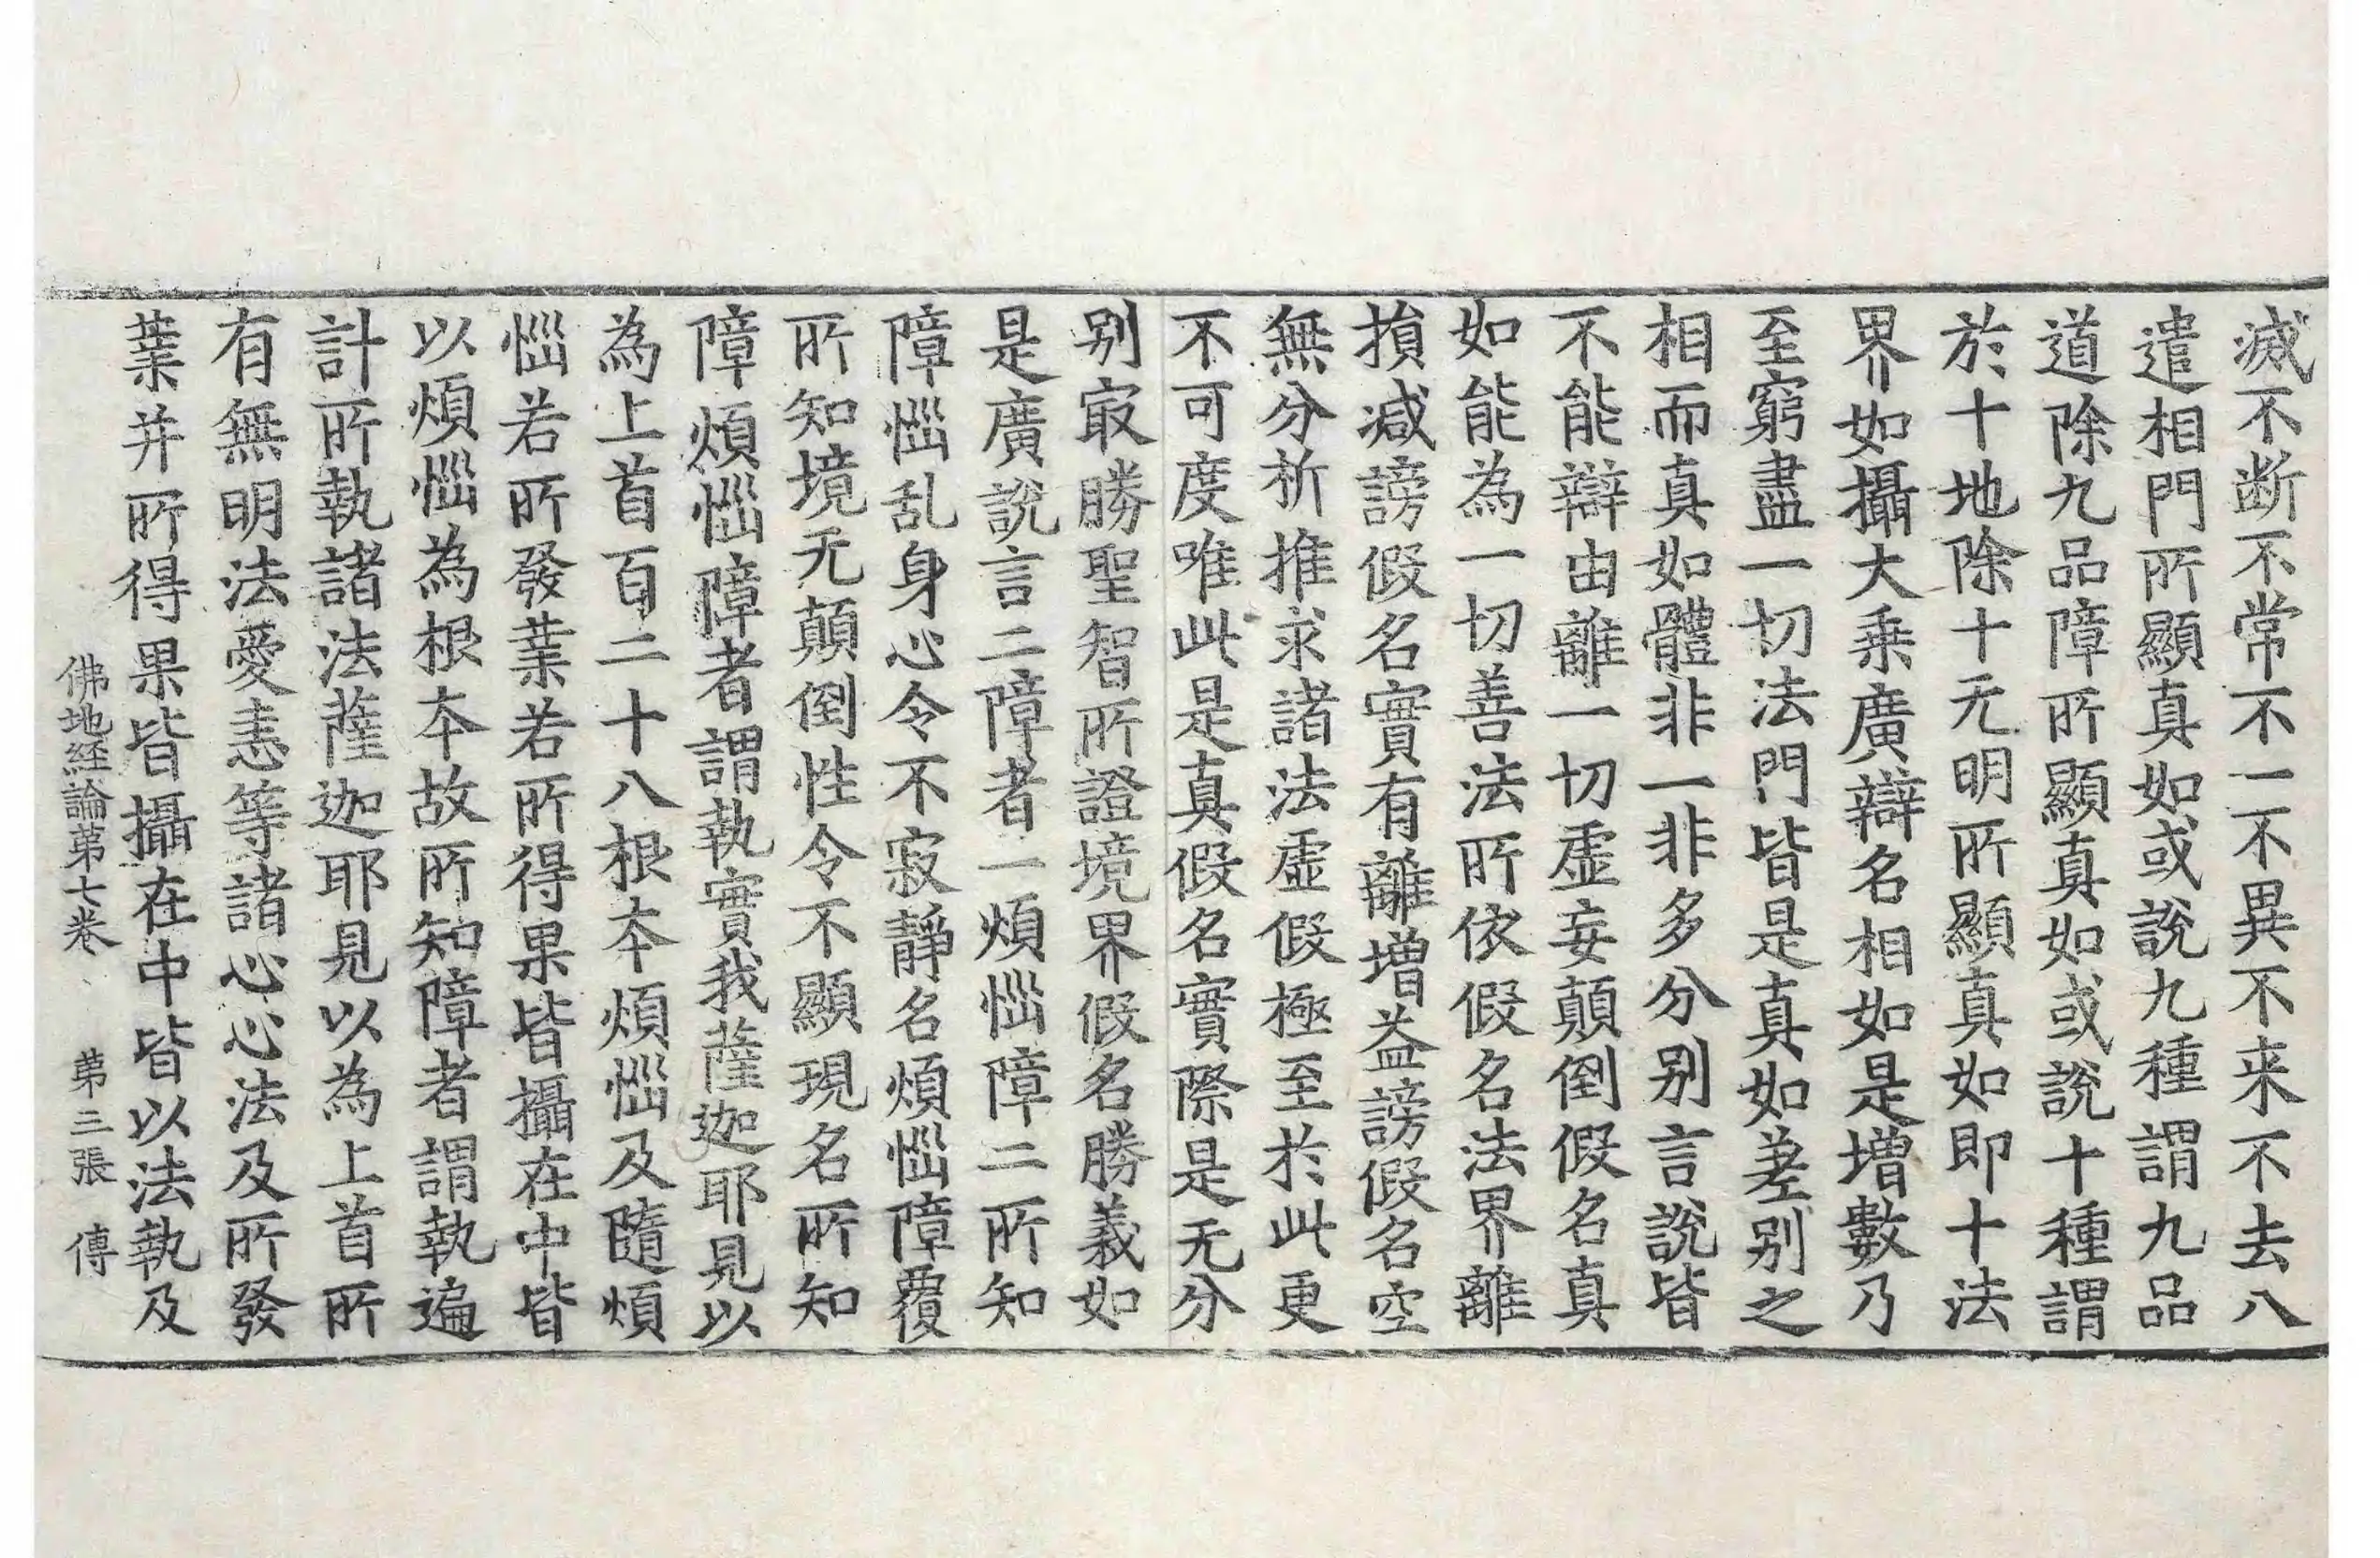 滅不断不常不一不異不来不去八
遣相門所顯真如或說九種謂九品
道除九品障所顯真如或說十種謂
於十地除十无明所顯真如即十法
界如攝大乗廣辯名相如是增數乃
至窮盡一切法門皆是真如差别之
相而真如體非一非多分别言說皆
不能辯由離一切虛妄顛倒假名真
如能為一切善法所依假名法界離
損减謗假名實有離增益謗假名空
無分析推求諸法虛假極至於此更
不可度唯此是真假名實際是无分
别㝡勝聖智所證境界假名勝義如
是廣說言二障者一煩惱障二所知
障惱乱身心令不寂靜名煩惱障覆
所知境无顛倒性令不顯現名所知
障煩惱障者謂執實我薩迦耶見以
為上首百二十八根夲煩惱及隨煩
惱若所發業若所得果皆攝在中皆
以煩惱為根夲故所知障者謂執遍
計所執諸法薩迦耶見以為上首所
有無明法愛恚等諸心心法及所發
業并所得果皆攝在中皆以法執及
佛地経論苐七卷 苐三張 傅